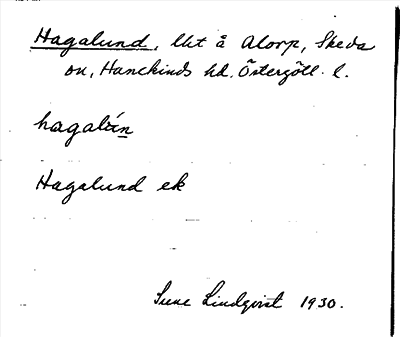 Hagalund, lht å Alorp, Skeda
sn, Hanekinds hd. Östergötl. l.
hagalún
Hagalund ek
Sune Lindqvist 1930.